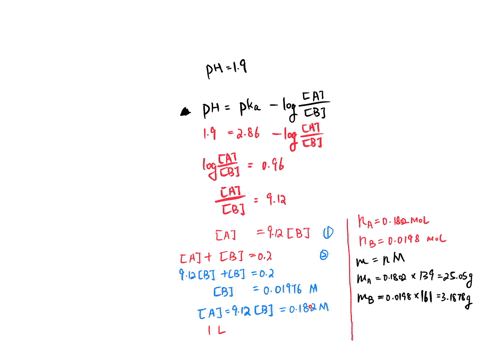 pH=1.9
▲ pH = pka - log [A]/[B]
1.9 = 2.86 - log [A]/[B]
log [A]/[B] = 0.96
[A]/[B] = 9.12
[A] = 9.12 [B] ①
[A] + [B] = 0.2 ②
9.12[B] + [B] = 0.2
[B] = 0.01976 M
[A] = 9.12 [B] = 0.182 M
1 L
nA = 0.182 mol
nB = 0.0198 mol
m = n M
mA = 0.1802 × 139 = 25.05g
mB = 0.0198 × 161 = 3.1878g